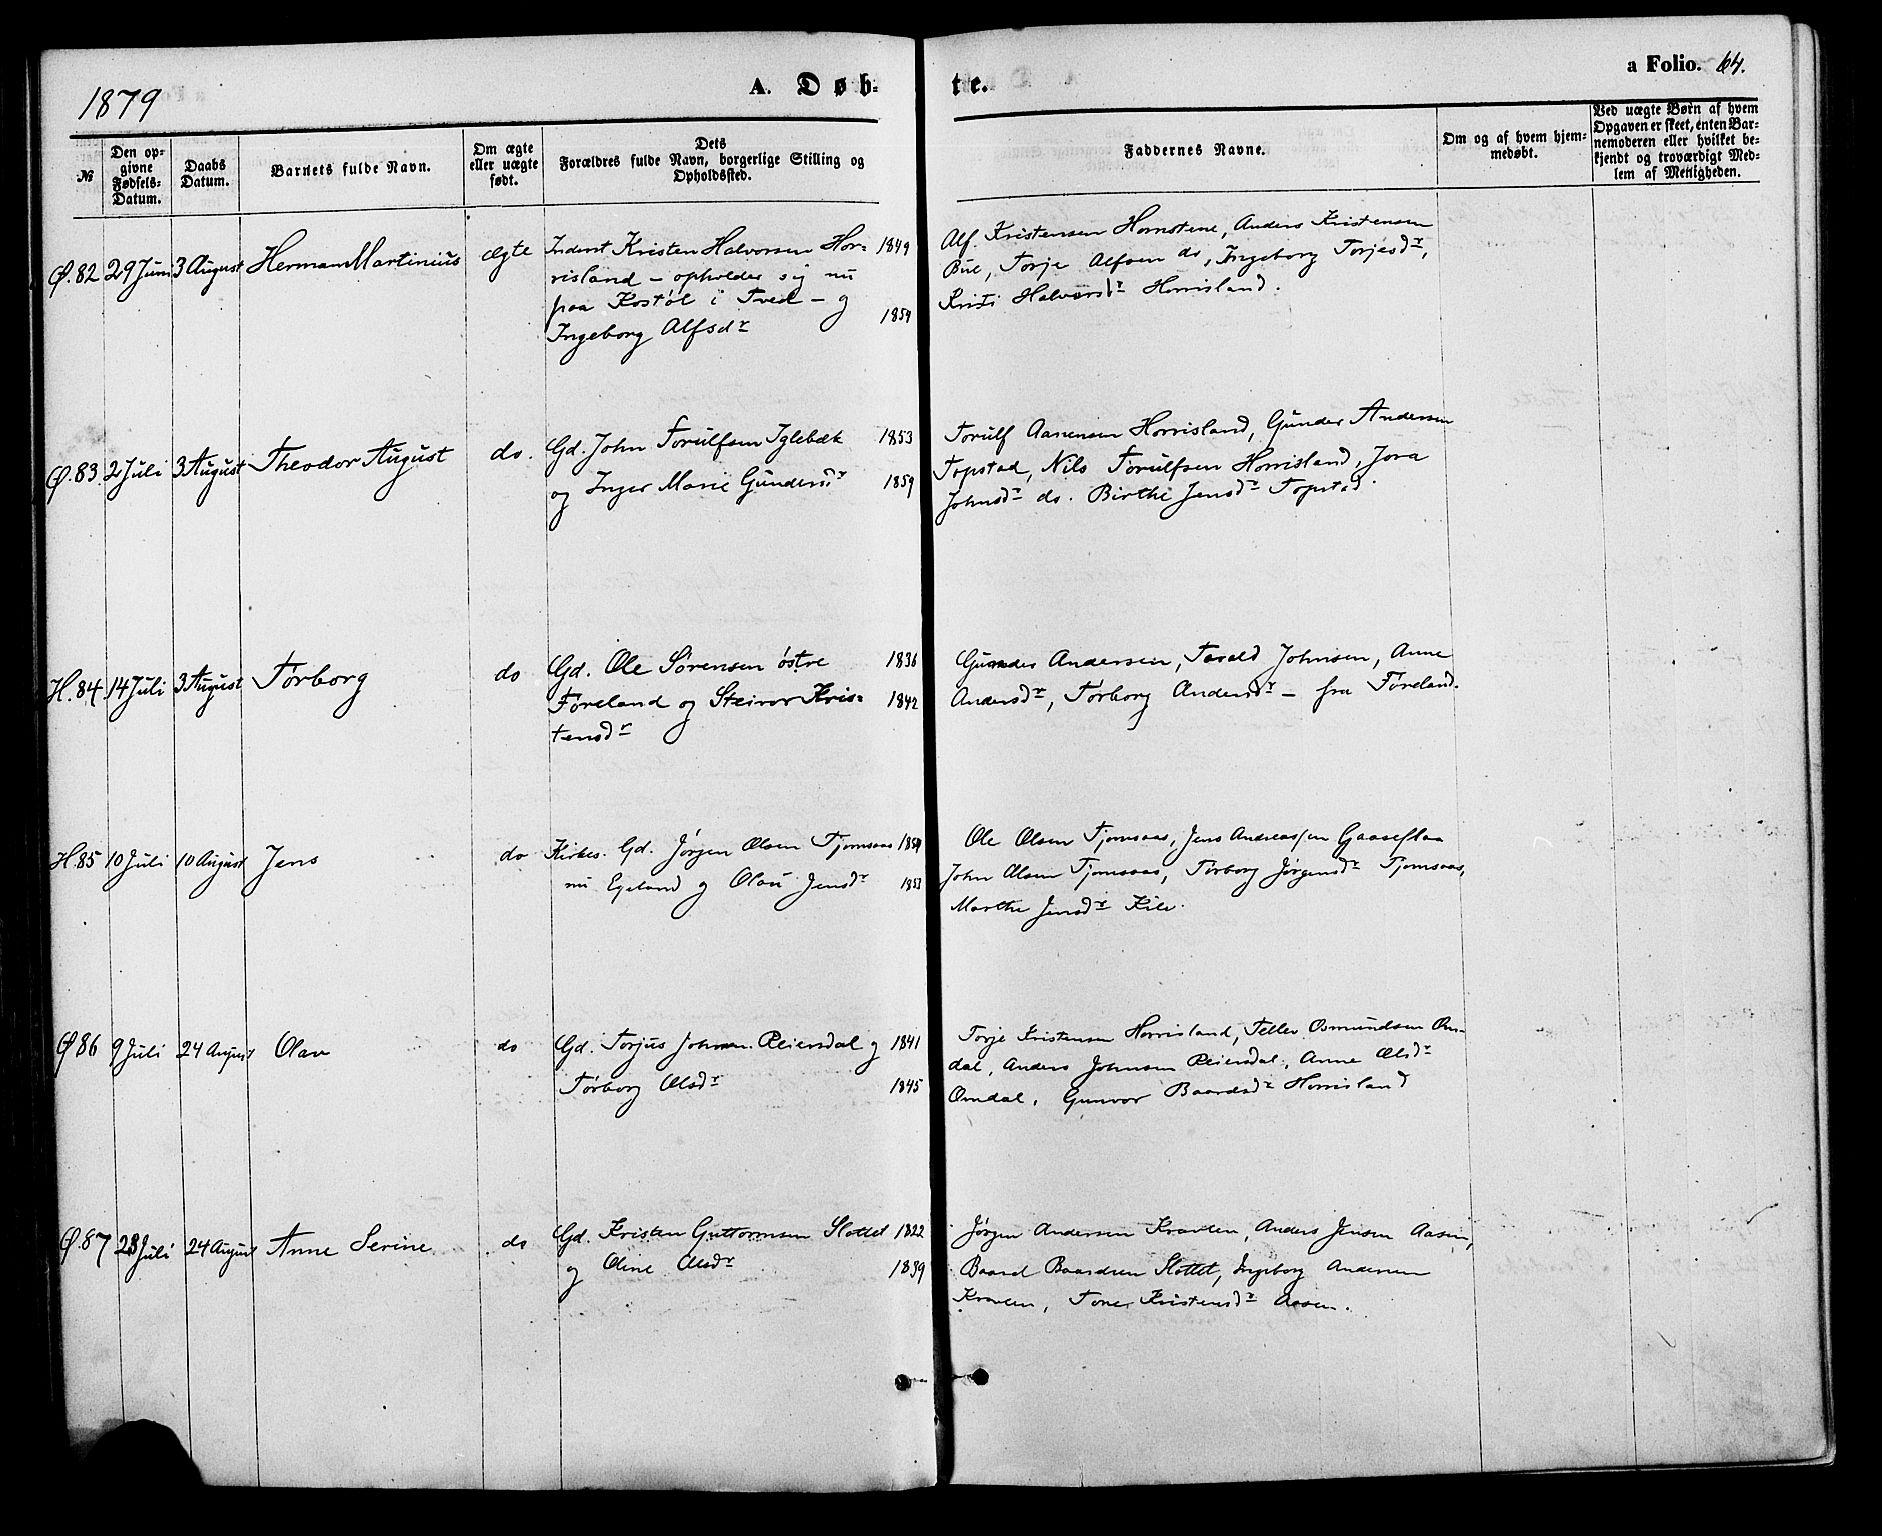 1879
A. Døb-
te.
a Folio. 64.
№
Den op-
givne
Fødsels-
Datum.
Daabs
Datum.
Barnets fulde Navn.
Om ægte
eller uægte
født.
Dets
Forældres fulde Navn, borgerlige Stilling og
Opholdssted.
Faddernes Navne.
Om og af hvem hjem-
medøbt.
Ved uægte Børn af hvem
Opgaven er skeet, enten Bar-
nemoderen eller hvilket be-
kjendt og troværdigt Med-
lem af Menigheden.
Ø. 82 29 Juni 3 August Herman Martinius ægte
Inderst Kristen Halvorsen Hor- 1849
risland – opholder sig nu
paa Kostøl i Tved – og
Ingeborg Alfsdr 1854
Alf Kristensen Hornstene, Anders Kristensen
Bue, Torje Alfsen do, Ingeborg Torjesdr,
Kristi Halvorsdr Horrisland.
Ø. 83 2 Juli 3 August Theodor August do.
Gd. John Torulfsen Iglebæk 1853
og Inger Marie Gundersdr 1859
Torulf Aanensen Horrisland, Gunder Andersen
Topstad, Nils Torulfsen Horrisland, Jora
Johnsdr do. Birthe Jensdr Topstad.
H. 84 14 Juli 3 August Tørborg do
Gd. Ole Sørensen østre 1836
Føreland og Steinvor Kris- 1842
tensdr
Gunder Andersen, Torald Johnsen, Anne
Andersdr, Tørborg Andersdr – fra Føreland.
H. 85 10 Juli 10 August Jens do
Kirkes. Gd. Jørgen Olsen Tjomsaas 1854
nu Egeland og Olau Jensdr 1853
Ole Olsen Tjomsaas, Jens Andreassen Gaaseflaa
John Olsen Tjomsaas, Tørborg Jørgensdr Tjomsaas,
Marthe Jensdr Kile.
Ø 86 9 Juli 24 August Olav do
Gd. Torjus Johnsen Reiersdal og 1841
Tørborg Olsdr 1845
Torje Kristensen Horrisland, Tellev Osmundsen Om-
dal, Anders Johnsen Reiersdal, Anne Olsdr
Omdal, Gunvor Baardsdr Horrisland
Ø. 87 23 Juli 24 August Anne Serine do
Gd. Kristen Guttormsen Slottet 1822
og Oline Olsdr 1839
Jørgen Andersen Kraven, Anders Jensen Aasen,
Baard Baardsen Slottet, Ingeborg Andersen
Kraven, Tone Kristensdr Aasen.